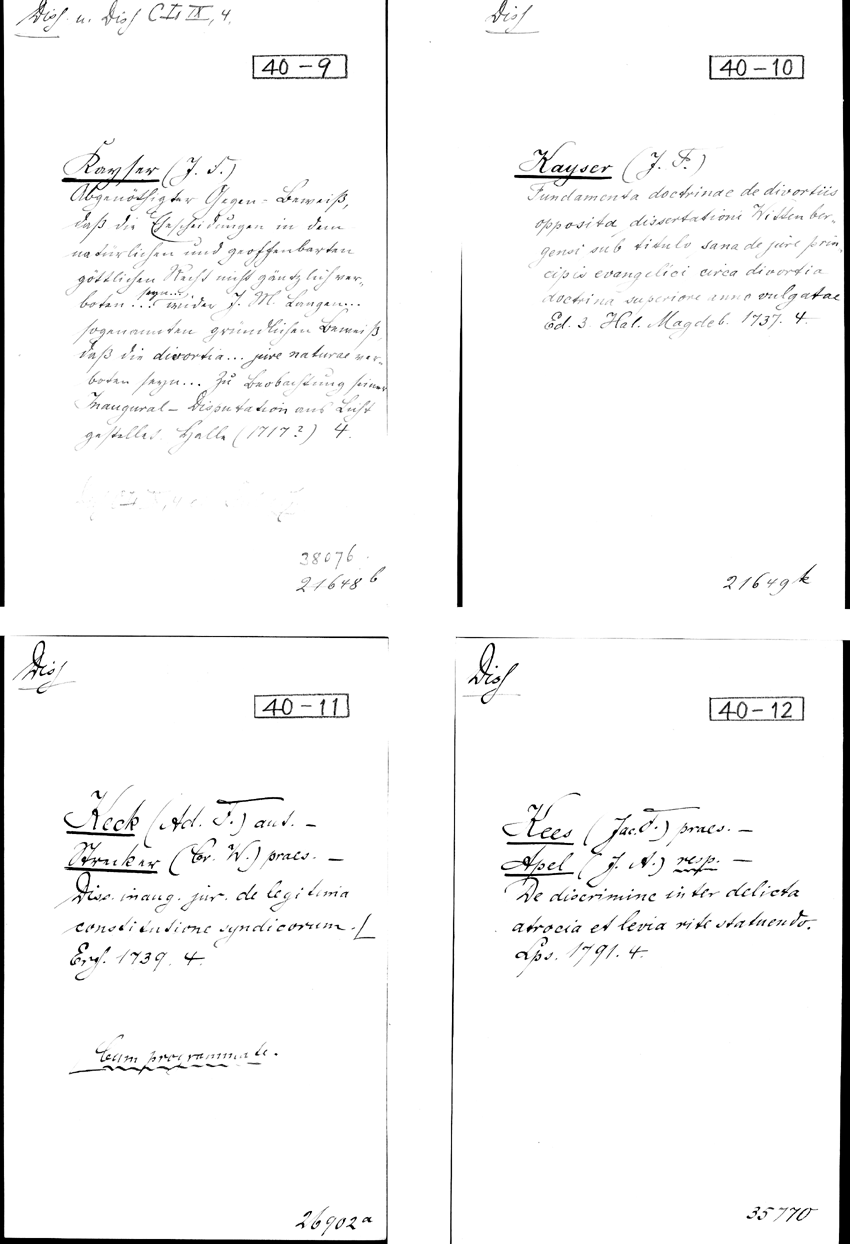 Diss. u. Diss C I, IX, 4.
40-9
Kayser (J. F.)
Abgenöthigter Gegen-Beweiß,
daß die Ehescheidungen in dem
natürlichen und geoffenbarten
göttlichen Recht nicht gäntzlich ver-
boten seyn... wider J. M. Langen...
sogenannten gründlichen Beweiß,
daß die divortia... jure naturae ver-
boten seyn... Zu Beobachtung seiner
Inaugural-Disputation ans Licht
gestellet. Halle (1717?) 4.
38076.
21648 b
Diss
40-10
Kayser (J. F.)
Fundamenta doctrinae de divortiis
opposita dissertationi Wittenber-
gensi sub titulo, sana de jure prin-
cipis evangelici circa divortia
doctrina superiore anno vulgatae
Ed. 3. Hal. Magdeb. 1737. 4.
21649 k
Diss
40-11
Keck (Ad. F.) aut. —
Strecker (Cr. W.) praes. —
Diss. inaug. jur. de legitima
constitutione syndicorum. /
Erf. 1739. 4.
Cum programmate.
26902 a
Diss
40-12
Kees (Jac. F.) praes. —
Apel (J. A.) resp. —
De discrimine inter delicta
atrocia et levia rite statuendo.
Lps. 1791. 4.
35770